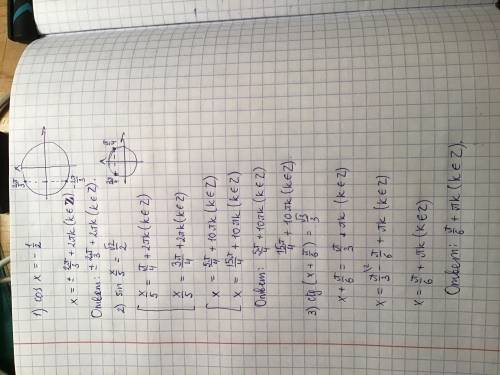 1) cos x = -1/2
2π/3
-2π/3
x = ± 2π/3 + 2πk (k∈Z).
Ответ: ± 2π/3 + 2πk (k∈Z).
2) sin x/5 = √2/2
[ x/5 = π/4 + 2πk (k∈Z)
x/5 = 3π/4 + 2πk (k∈Z)
[ x = 5π/4 + 10πk (k∈Z)
x = 15π/4 + 10πk (k∈Z)
Ответ: 5π/4 + 10πk (k∈Z)
15π/4 + 10πk (k∈Z)
3) ctg(x + π/6) = √3/3
x + π/6 = π/3 + πk (k∈Z)
x = π/3 - π/6 + πk (k∈Z)
x = π/6 + πk (k∈Z)
Ответ: π/6 + πk (k∈Z).